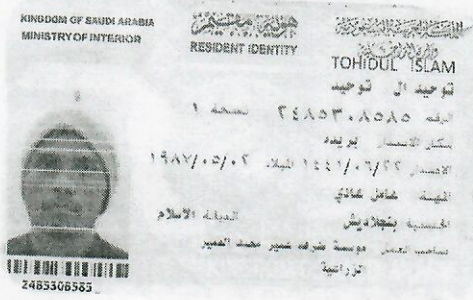 KINGDOM OF SAUDI ARABIA
MINISTRY OF INTERIOR
هوية مقيم
RESIDENT IDENTITY
TOHIDUL ISLAM
توحيد ال توحيد
الرقم ٢٤٨٥٣٠٨٥٨٥ نسخة ١
مكان الاصدار بريده
الاصدار ١٤٤١/٠٦/٢٢ الميلاد ١٩٨٧/٠٥/٠٢
المهنة عامل عادي
الجنسية بنجلاديش الديانة الاسلام
صاحب العمل موسسة شرف عمير محمد العمير
الزراعية
2485308585